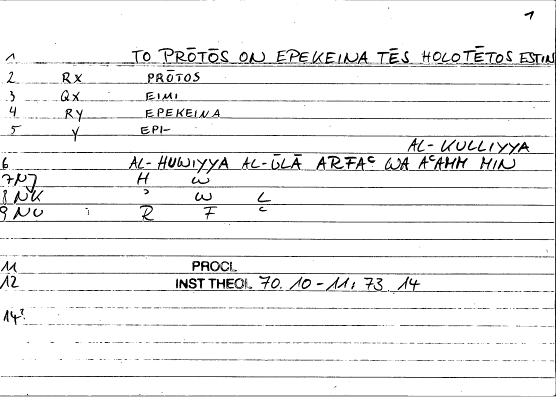 1
1 TO PRŌTŌS ON EPEKEINA TĒS HOLOTĒTOS ESTIN
2 Rx PRŌTOS
3 Qx EIMI
4 Ry EPEKEINA
5 y EPI-
AL-KULLIYYA
6 AL-HUWIYYA AL-ŪLĀ ARFAᶜ WA AᶜAMM MIN
7 NJ H W
8 NK ʾ W L
9 NU R F ᶜ
11 PROCL
12 INST THEOL 70. 10-11; 73 14
14?